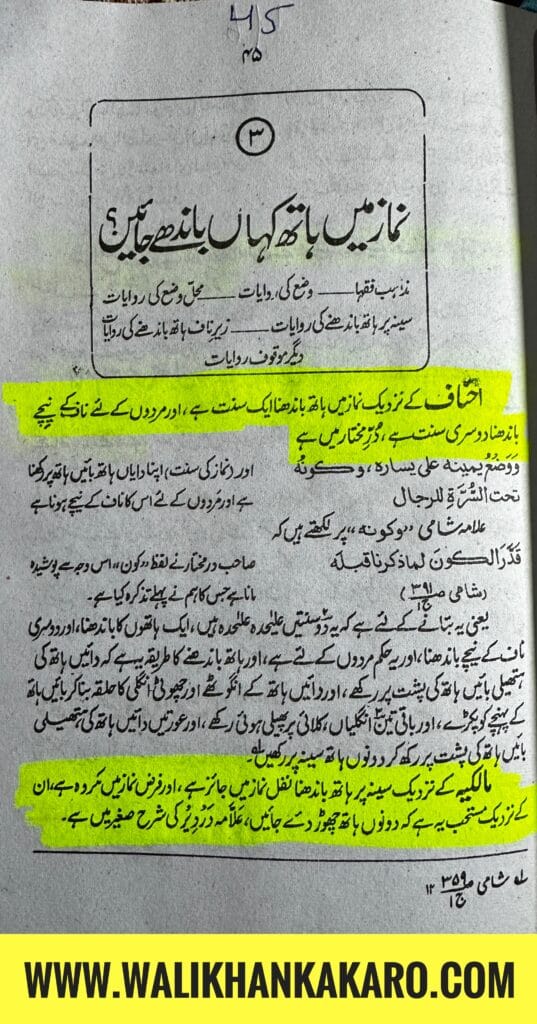 45
۴۵
۳
نماز میں ہاتھ کہاں باندھے جائیں؟
مذاہب فقہا ـــــ وضع کی روایات ـــــ محلّ وضع کی روایات
سینہ پر ہاتھ باندھنے کی روایات ـــــ زیرِ ناف ہاتھ باندھنے کی روایات
دیگر موقوف روایات
احناف کے نزدیک نماز میں ہاتھ باندھنا ایک سنت ہے، اور مردوں کے لئے ناف کے نیچے
باندھنا دوسری سنت ہے، دُرِّ مختار میں ہے
وَوَضْعُ یمینه علی یساره، وکونُه اور (نماز کی سنت) اپنا دایاں ہاتھ بائیں ہاتھ پر رکھنا
تحت السُّرَّةِ للرجال ہے اور مَردوں کے لئے اس کا ناف کے نیچے ہونا ہے
علامہ شامی «وکونه» پر لکھتے ہیں کہ
قَدَّرَ الکونَ لما ذکرنا قبلَه صاحب درمختار نے لفظ «کون» اس وجہ سے پوشیدہ
(شامی ص۳۹۱ ج۱) مانا ہے جس کا ہم نے پہلے تذکرہ کیا ہے۔
یعنی یہ بتانے کے لئے ہے کہ یہ دو سنتیں علیحدہ علیحدہ ہیں، ایک ہاتھوں کا باندھنا، اور دوسری
ناف کے نیچے باندھنا، اور یہ حکم مردوں کے لئے ہے، اور ہاتھ باندھنے کا طریقہ یہ ہے کہ دائیں ہاتھ کی
ہتھیلی بائیں ہاتھ کی پشت پر رکھے، اور دائیں ہاتھ کے انگوٹھے اور چھوٹی انگلی کا حلقہ بنا کر بائیں ہاتھ
کے پہنچے کو پکڑے، اور باقی تین انگلیاں، کلائی پر پھیلی ہوئی رکھے، اور عورتیں دائیں ہاتھ کی ہتھیلی
بائیں ہاتھ کی پشت پر رکھ کر دونوں ہاتھ سینہ پر رکھیں ؎۱۔
مالکیہ کے نزدیک سینہ پر ہاتھ باندھنا نفل نماز میں جائز ہے، اور فرض نماز میں مکروہ ہے، ان
کے نزدیک مستحب یہ ہے کہ دونوں ہاتھ چھوڑ دئے جائیں، علّامہ دَرْدِیْرُ کی شرح صغیر میں ہے۔
؎۱ شامی ص۳۵۹ ج۱ ۱۲
WWW.WALIKHANKAKARO.COM